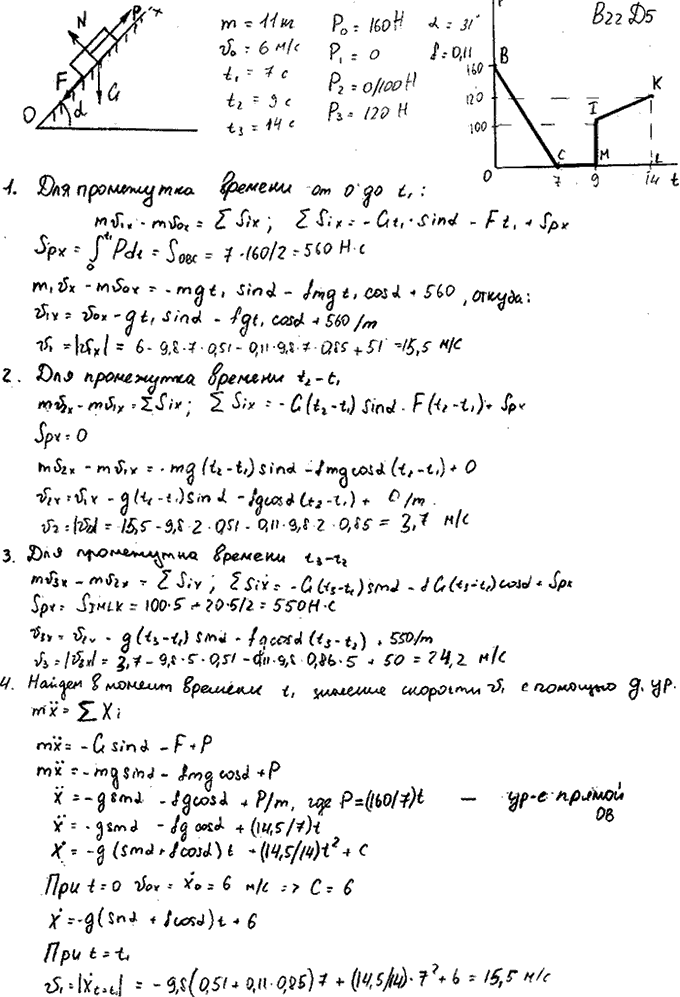 m = 11 кг P₀ = 160 Н α = 31° В22 Д5
v₀ = 6 м/с P₁ = 0 f = 0,11
t₁ = 7 с P₂ = 0/100 Н
t₂ = 9 с P₃ = 120 Н
t₃ = 14 с
N P x
F G
O α
B
160
120 I K
100
C M L
0 7 9 14 t
1. Для промежутка времени от 0 до t₁:
mv₁ₓ - mv₀ₓ = ∑Siₓ; ∑Siₓ = -Gt₁·sinα - Ft₁ + Spx
Spx = ∫₀^t₁ Pdt = S_OBC = 7·160/2 = 560 Н·с
m₁vₓ - mv₀ₓ = -mgt₁ sinα - fmgt₁ cosα + 560, откуда:
v₁ₓ = v₀ₓ - gt₁ sinα - fgt₁ cosα + 560/m
v₁ = |v₁ₓ| = 6 - 9,8·7·0,51 - 0,11·9,8·7·0,85 + 51 = 15,5 м/с
2. Для промежутка времени t₂-t₁
mv₂ₓ - mv₁ₓ = ∑Siₓ; ∑Siₓ = -G(t₂-t₁) sinα - F(t₂-t₁) + Spx
Spx = 0
mv₂ₓ - mv₁ₓ = -mg(t₂-t₁) sinα - fmg cosα (t₂-t₁) + 0
v₂ₓ = v₁ₓ - g(t₂-t₁) sinα - fg cosα (t₂-t₁) + 0/m.
v₂ = |v₂| = 15,5 - 9,8·2·0,51 - 0,11·9,8·2·0,85 = 3,7 м/с
3. Для промежутка времени t₃-t₂
mv₃ₓ - mv₂ₓ = ∑Siₓ; ∑Siₓ = -G(t₃-t₂) sinα - fG(t₃-t₂) cosα + Spx
Spx = S_IMLK = 100·5 + 20·5/2 = 550 Н·с
v₃ₓ = v₂ₓ - g(t₃-t₂) sinα - fg cosα (t₃-t₂) + 550/m
v₃ = |v₃ₓ| = 3,7 - 9,8·5·0,51 - 0,11·9,8·0,86·5 + 50 = 24,2 м/с
4. Найдем в момент времени t₁ значение скорости v₁ с помощью д. ур.
mẍ = ∑Xi
mẍ = -G sinα - F + P
mẍ = -mg sinα - fmg cosα + P
ẍ = -g sinα - fg cosα + P/m, где P = (160/7)t — ур-е прямой
ОВ
ẍ = -g sinα - fg cosα + (14,5/7)t
ẋ = -g(sinα + f cosα)t + (14,5/14)t² + C
При t = 0 v₀ₓ = ẋ₀ = 6 м/с => C = 6
ẋ = -g(sinα + f cosα)t + 6
При t = t₁
v₁ = |ẋt=t₁| = -9,8(0,51 + 0,11·0,85)7 + (14,5/14)·7² + 6 = 15,5 м/с